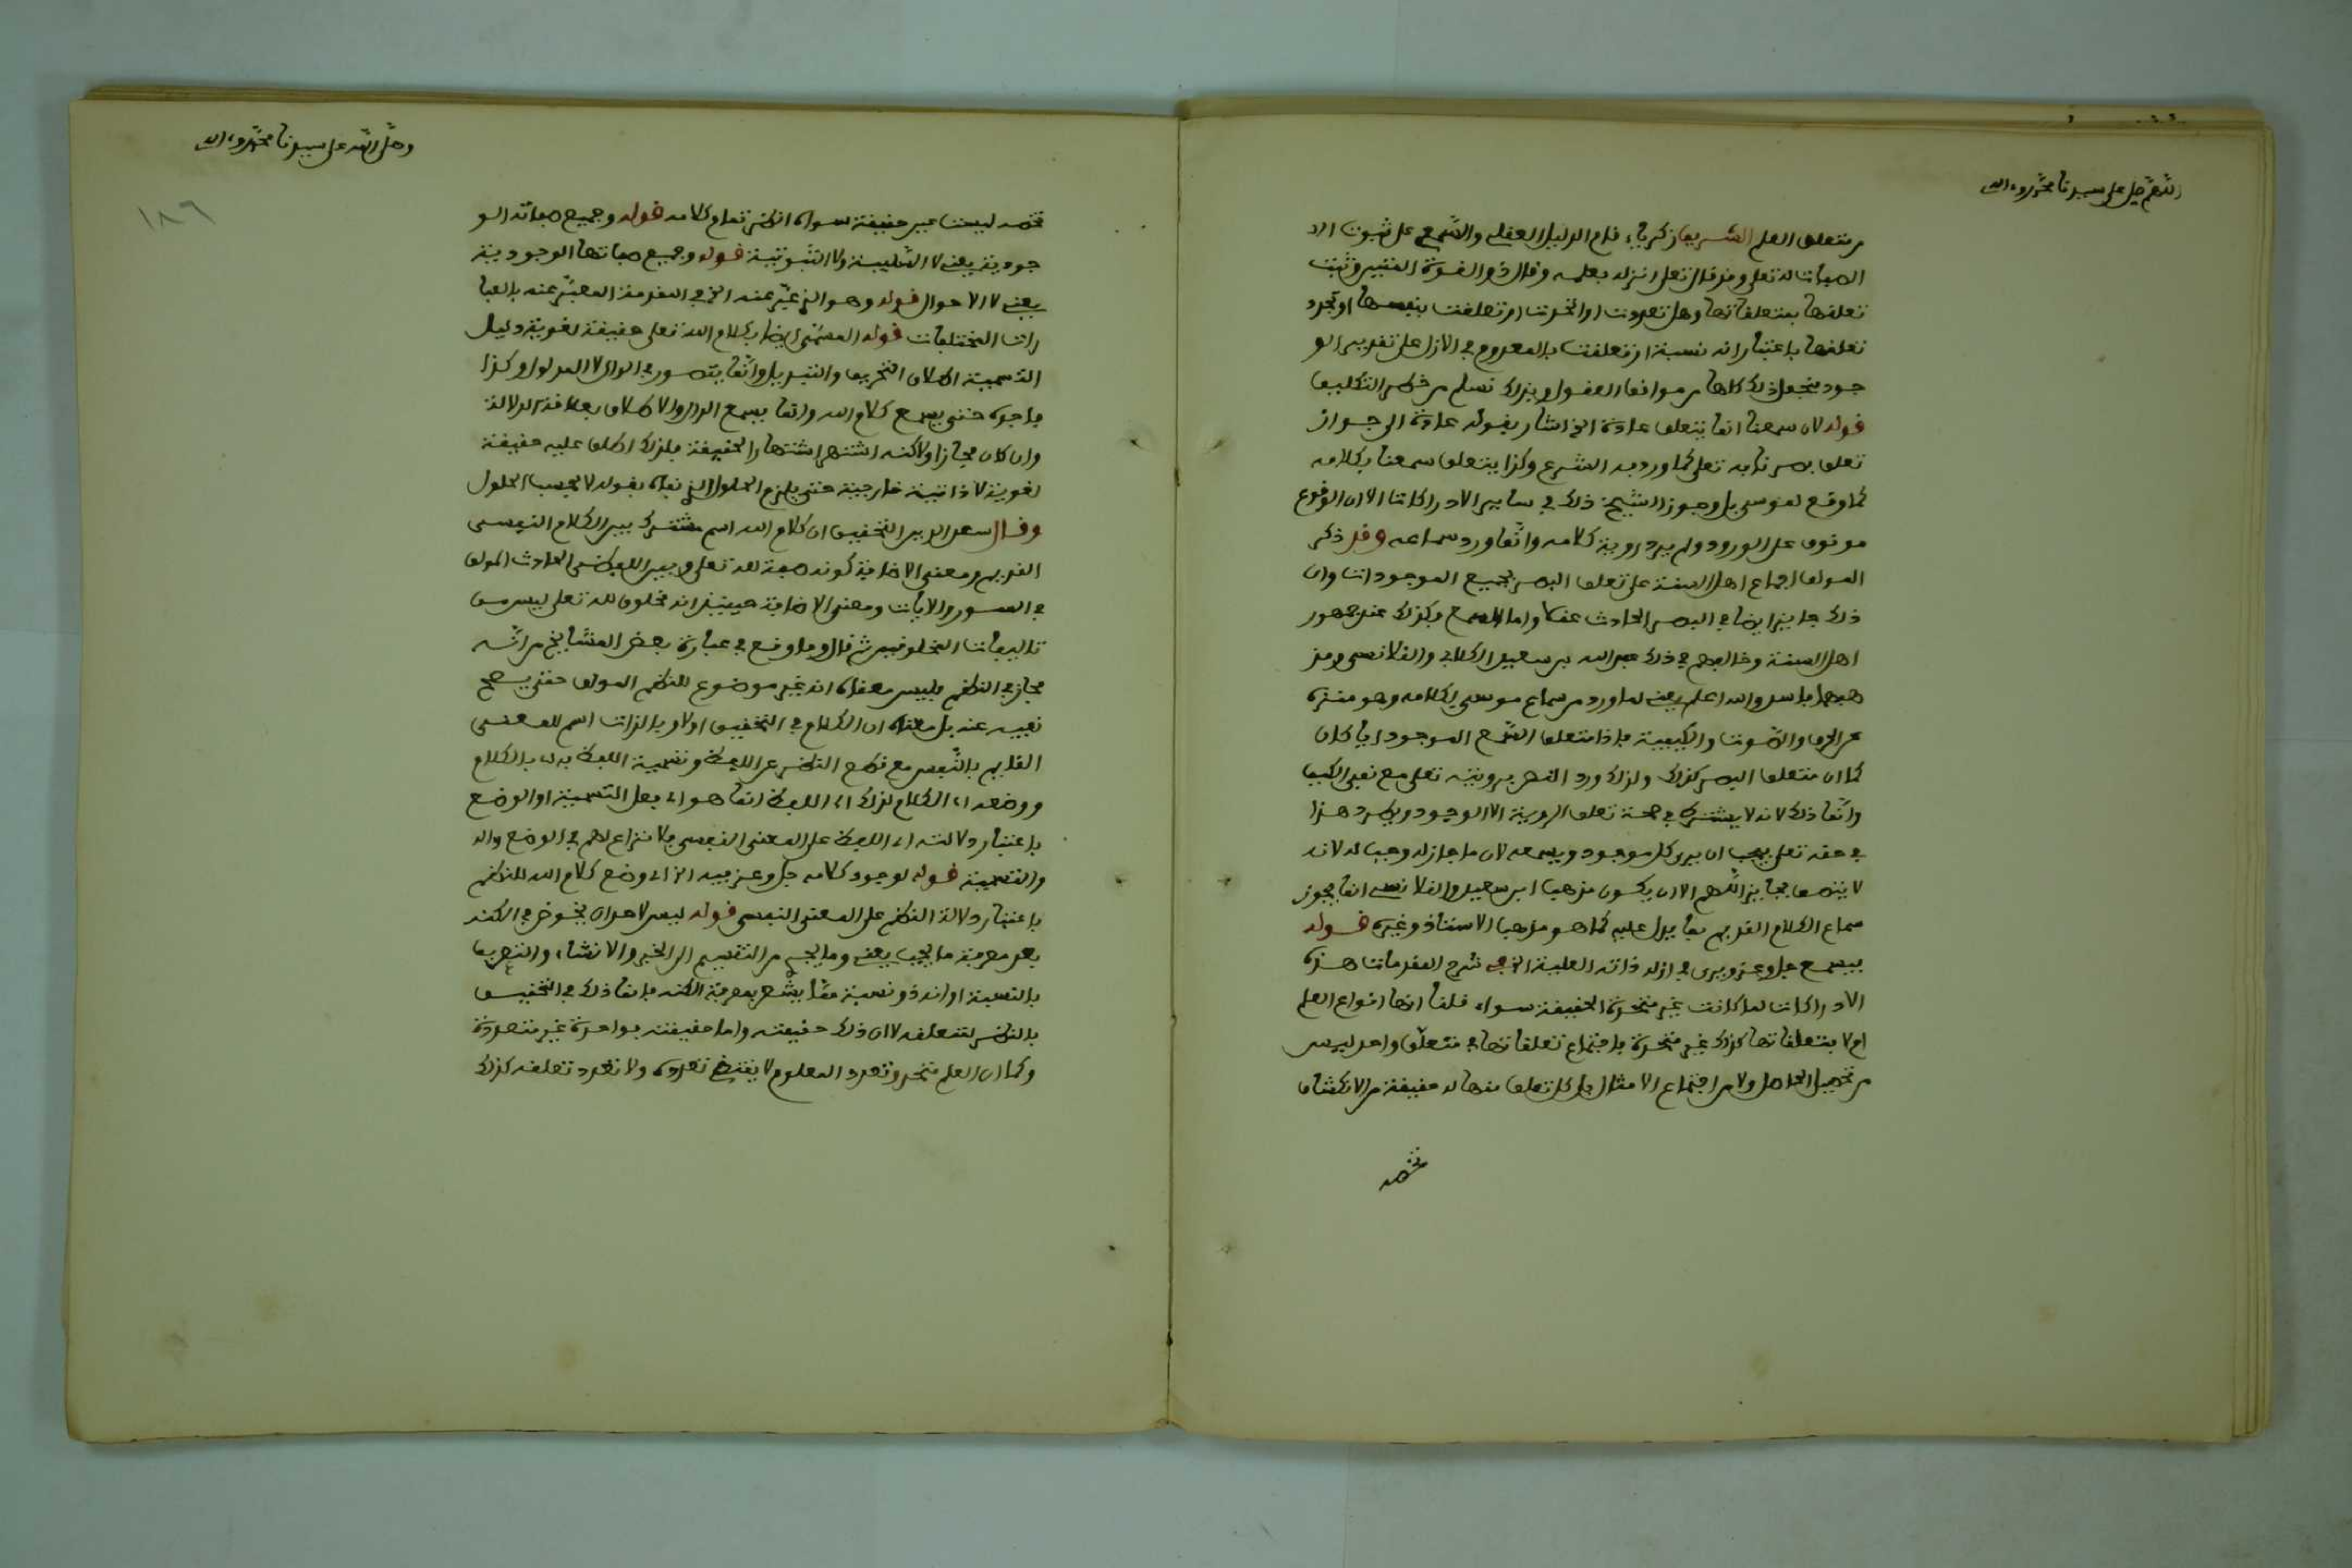 اللهم صل على سيدنا محمد وءاله
من متعلق العلم الشريف زكرياء قام الدليل العقلي والسمع على ثبوت
الصفات له تعلى وقد قال تعلى انزله بعلمه وقال ذو القوة المتين وثبت
تعلقها بمتعلقاتها وهل تعددت او اتحدت او تعلقت بنفسها او تجدد
تعلقها باعتبار انه نسبة او تعلقت بالمعدوم في الازل على تقدير الو
جود فجعل ذلك كلها من مواقف العقول وبذلك تسلم من خطر التكليف
قوله لان سمعنا انما يتعلق عادة الخ اشار بقوله عادة الى جواز
تعلق بصرنا به تعلى كما ورد به الشرع وكذا يتعلق سمعنا بكلامه
كما وقع لموسى بل وجوز الشيخ ذلك في ساير الادراكات الا ان الوقوع
موقوف على الورود ولم يرد روية كلامه وانما ورد سماعه وقد ذكر
المولف اجماع اهل السنة على تعلق البصر بجميع الموجودات وان
ذلك جايز ايضا في البصر الحادث عقلا واما السمع فكذلك عند جمهور
اهل السنة وخالفهم في ذلك عبد الله بن سعيد الكلابي والقلانسي ومذ
هبهما فاسد والله اعلم يعني لما ورد من سماع موسى لكلامه وهو منزه
عن الحرف والصوت والكيفية فاذا متعلق السمع الموجود ايا كان
كما ان متعلق البصر كذلك ولذلك ورد النص برويته تعلى مع نفي الكيف
وانما ذلك لانه لا يشترط في صحة تعلق الروية الا الوجود ويطرد هذا
في حقه تعلى فيجب ان يرى كل موجود ويسمعه لان ما جاز له وجب له لانه
لا يتصف بجايز اللهم الا ان يكون مذهب ابن سعيد والقلانسي انما يجوز
سماع الكلام القديم بما يدل عليه كما هو مذهب الاستاذ وغيره قوله
فيسمع جل وعز ويرى في ازله ذاته العلية الخ في شرح المقدمات هذه
الادراكات لما كانت غير متحدة الحقيقة سواء قلنا انها انواع العلم
ام لا فتعلقاتها كذلك غير متحدة فاجتماع تعلقاتها في متعلق واحد ليس
من تحصيل الحاصل ولا من اجتماع الامثال بل كل تعلق منها له حقيقة من الانكشاف
تخصه
وصلى الله على سيدنا محمد وءاله
١٨٦
تخصه ليست عين حقيقة سواه انظر تمام كلامه قوله وجميع صفاته الو
جودية يعني لا السلبية ولا الثبوتية قوله وجميع صفاتها الوجودية
يعني لا الاحوال قوله وهو الذي عبر عنه الخ في المقدمة المعبر عنه بالعبا
رات المختلفات قوله المسمى ايضا بكلام الله تعلى حقيقة لغوية دليل
التسمية اطلاق التحريف والتبديل وانما يتصور في الدال لا المدلول وكذا
فاجره حتى يسمع كلام الله وانما يسمع الدال والاطلاق بعلاقة الدلالة
وان كان مجازا ولاكنه اشتهر اشتهار الحقيقة فلذلك اطلق عليه حقيقة
لغوية لا ذاتية خارجية حتى يلزم الحلول الذي نفاه بقوله لا بحسب الحلول
وقال سعد الدين التحقيق ان كلام الله اسم مشترك بين الكلام النفسي
القديم ومعنى الاضافة كونه صفة لله تعلى وبين اللفظي الحادث المولف
في السور والايات ومعنى الاضافة حينئذ انه مخلوق لله تعلى ليس من
تاليفات المخلوقين ثم قال وما وقع في عبارة بعض المشايخ من انه
مجاز في النظم فليس معناه انه غير موضوع للنظم المولف حتى يصح
نفيه عنه بل معناه ان الكلام في التحقيق اولا وبالذات اسم للمعنى
القايم بالنفس مع قطع النظر عن اللفظ وتسمية اللفظ به اي بالكلام
ووضعه اي الكلام لذلك اي اللفظ انما هو اي فعل التسمية او الوضع
باعتبار دلالته اي اللفظ على المعنى النفسي فلا نزاع لهم في الوضع وال
والتسمية قوله لوجود كلامه جل وعز فيه الخ اي وضع كلام الله للنظم
باعتبار دلالة النظم على المعنى النفسي قوله ليس لاحد ان يخوض في الكنه
بعد معرفة ما يجب يعني وما يجب من التقسيم الى الخبر والانشاء والتعريف
بالنسبة او انه ذو نسبة مما يشعر بمعرفة الكنه فانما ذلك في التحقيق
بالنظر لتعلقه لا ان ذلك حقيقته واما حقيقته فواحدة غير متعددة
وكما ان العلم متحد وتعدد المعلوم لا يقتضي تعدده ولا تعدد تعلقه كذلك